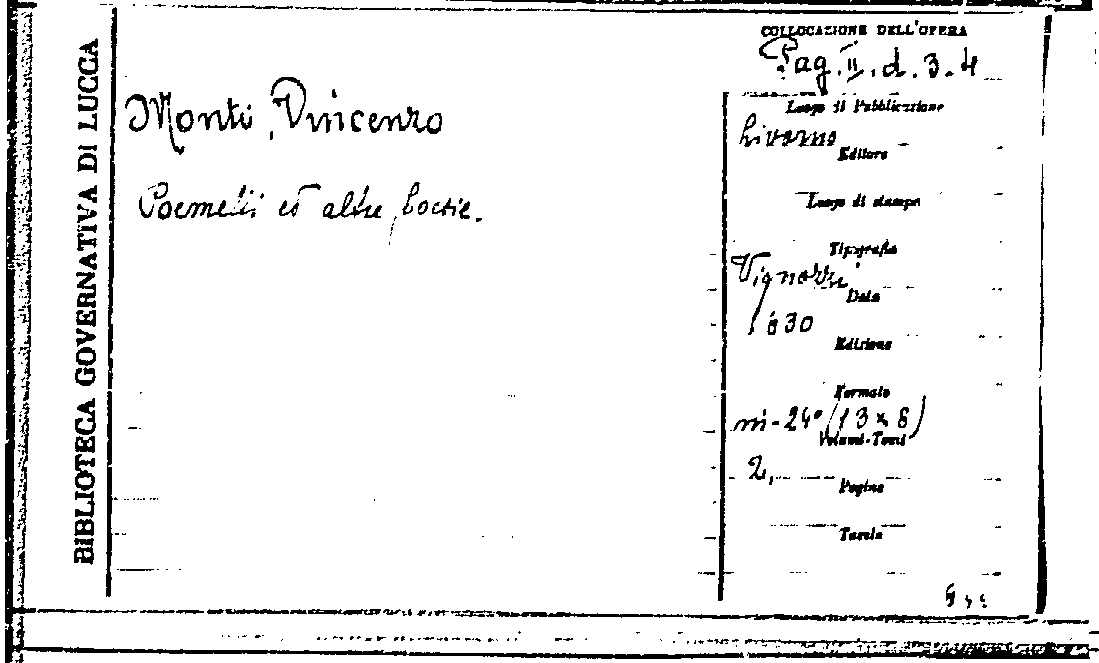 BIBLIOTECA GOVERNATIVA DI LUCCA
Monti, Vincenzo
Poemetti ed altre poesie.
COLLOCAZIONE DELL'OPERA
Pag. II. d. 3. 4
Luogo di Pubblicazione
Livorno
Editore
Luogo di stampa
Tipografia
Vignozzi
Data
1830
Edizione
Formato
in-24° (13 x 8)
Volumi-Tomi
2,
Pagine
Tavole